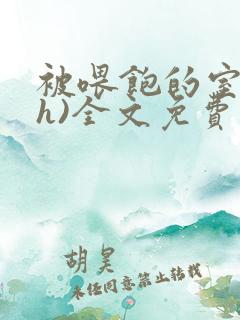 被喂飽的室
h)全文免費
胡昊
未经同意禁止转载